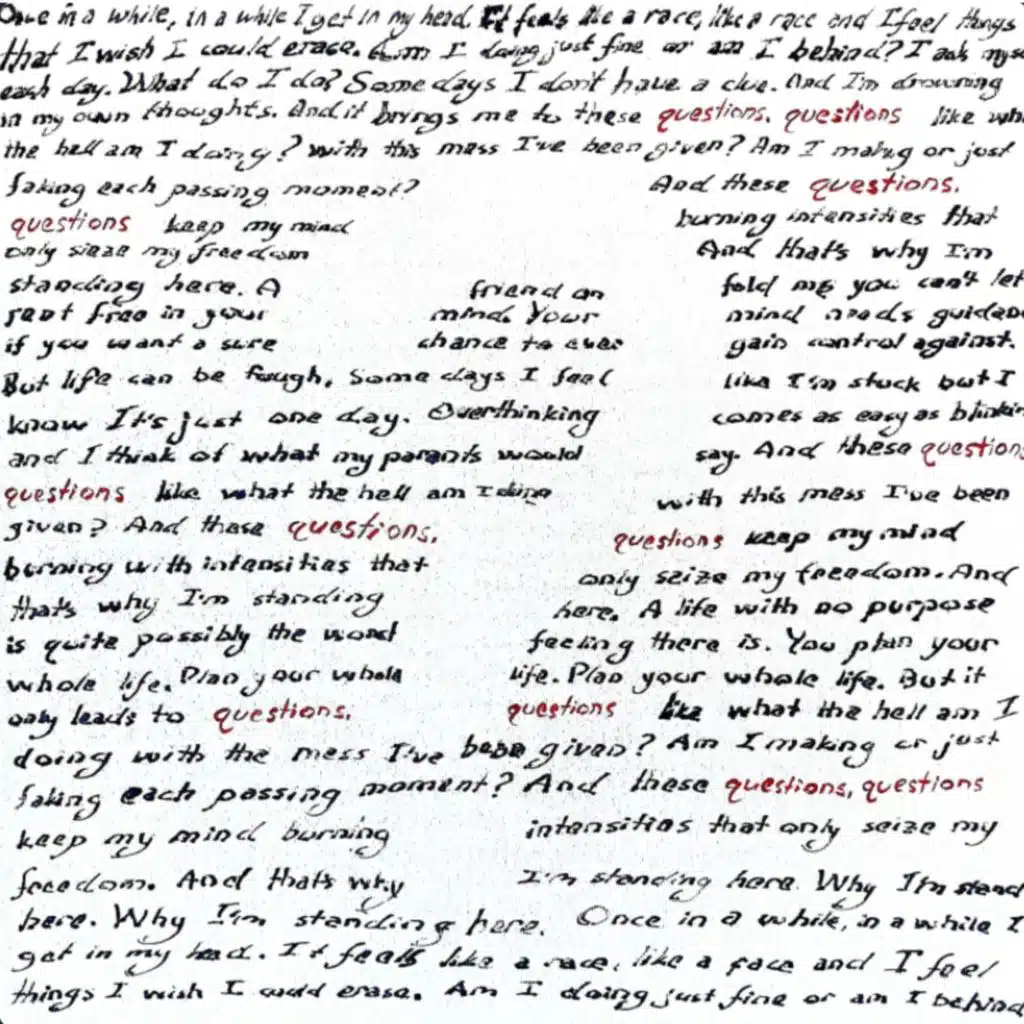 Once in a while, in a while I get in my head. It feels like a race, like a race and I feel things
that I wish I could erase. Am I doing just fine or am I behind? I ask myse
each day. What do I do? Some days I don't have a clue. And I'm drowning
in my own thoughts. And it brings me to these questions. questions like wha
the hell am I doing? with this mess I've been given? Am I making or just
faking each passing moment? And these questions.
questions keep my mind burning intensities that
only seize my freedom And that's why I'm
standing here. A friend on told me you can't let
rent free in your mind. Your mind needs guidan
if you want a sure chance to ever gain control against.
But life can be tough, Some days I feel like I'm stuck but I
know It's just one day. Overthinking comes as easy as blinkin
and I think of what my parents would say. And these questions
questions like what the hell am I doing with this mess I've been
given? And these questions. questions keep my mind
burning with intensities that only seize my freedom. And
that's why I'm standing here. A life with no purpose
is quite possibly the worst feeling there is. You plan your
whole life. Plan your whole life. Plan your whole life. But it
only leads to questions. questions like what the hell am I
doing with the mess I've been given? Am I making or just
faking each passing moment? And these questions, questions
keep my mind burning intensities that only seize my
freedom. And that's why I'm standing here. Why I'm stand
here. Why I'm standing here. Once in a while, in a while I
get in my head. It feels like a race, like a race and I feel
things I wish I could erase. Am I doing just fine or am I behind